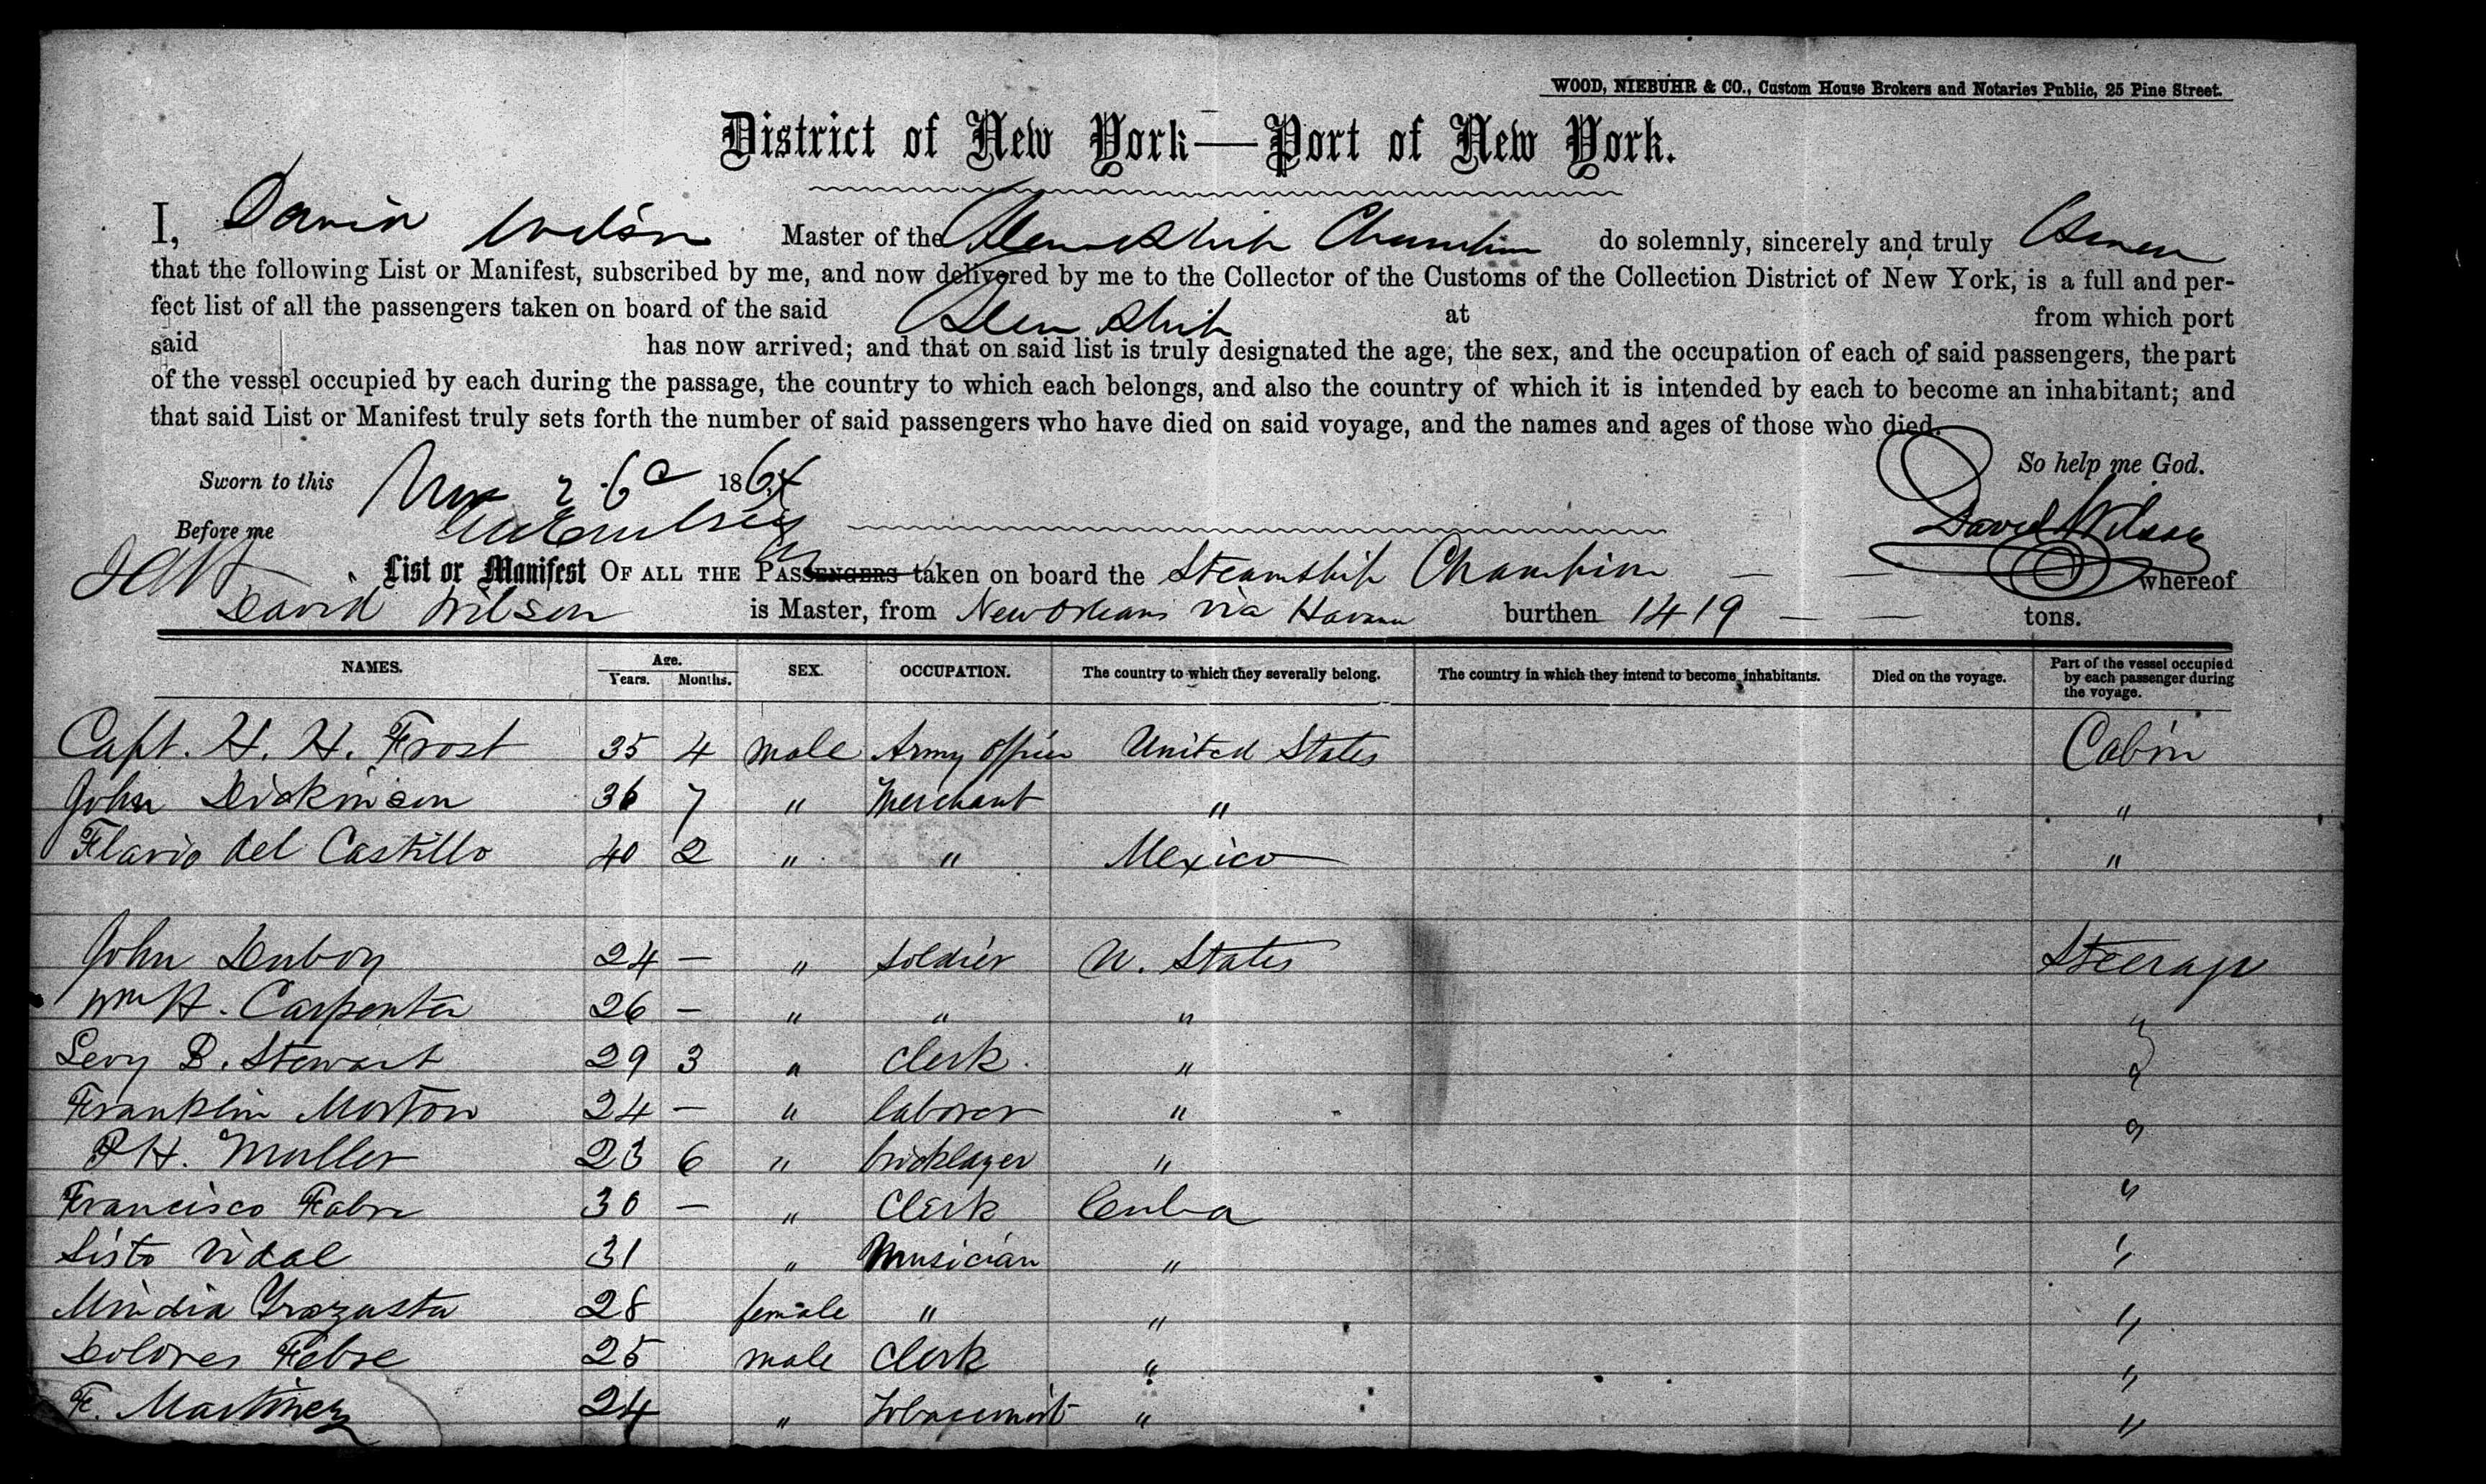 WOOD, NIEBUHR & CO., Custom House Brokers and Notaries Public, 25 Pine Street.
District of New York—Port of New York.
I, David Wilson Master of the Steam Ship Champion do solemnly, sincerely and truly
that the following List or Manifest, subscribed by me, and now delivered by me to the Collector of the Customs of the Collection District of New York, is a full and per-
fect list of all the passengers taken on board of the said Steam Ship at from which port
said has now arrived; and that on said list is truly designated the age, the sex, and the occupation of each of said passengers, the part
of the vessel occupied by each during the passage, the country to which each belongs, and also the country of which it is intended by each to become an inhabitant; and
that said List or Manifest truly sets forth the number of said passengers who have died on said voyage, and the names and ages of those who died.
So help me God.
Sworn to this 26 1864
David Wilson
Before me
List or Manifest OF ALL THE PASSENGERS taken on board the Steamship Champion — — whereof
David Wilson is Master, from New Orleans via Havana burthen 1419 — — tons.
NAMES. Age. Years. Months. SEX. OCCUPATION. The country to which they severally belong. The country in which they intend to become inhabitants. Died on the voyage. Part of the vessel occupied by each passenger during the voyage.
Capt. H. H. Frost 35 4 male Army officer United States Cabin
John Dickinson 36 7 " Merchant " "
Flavio del Castillo 40 2 " " Mexico "
John Duboy 24 — " Soldier U. States Steerage
Wm H. Carpenter 26 — " " " "
Levy B. Stewart 29 3 " Clerk " "
Franklin Morton 24 — " laborer " "
P H. Muller 23 6 " bricklayer " "
Francisco Fabre 30 — " Clerk Cuba "
Sisto Vidal 31 " Musician " "
28 female " " "
Dolores Febre 25 male Clerk " "
F. Martinez 24 " Tobacconist " "